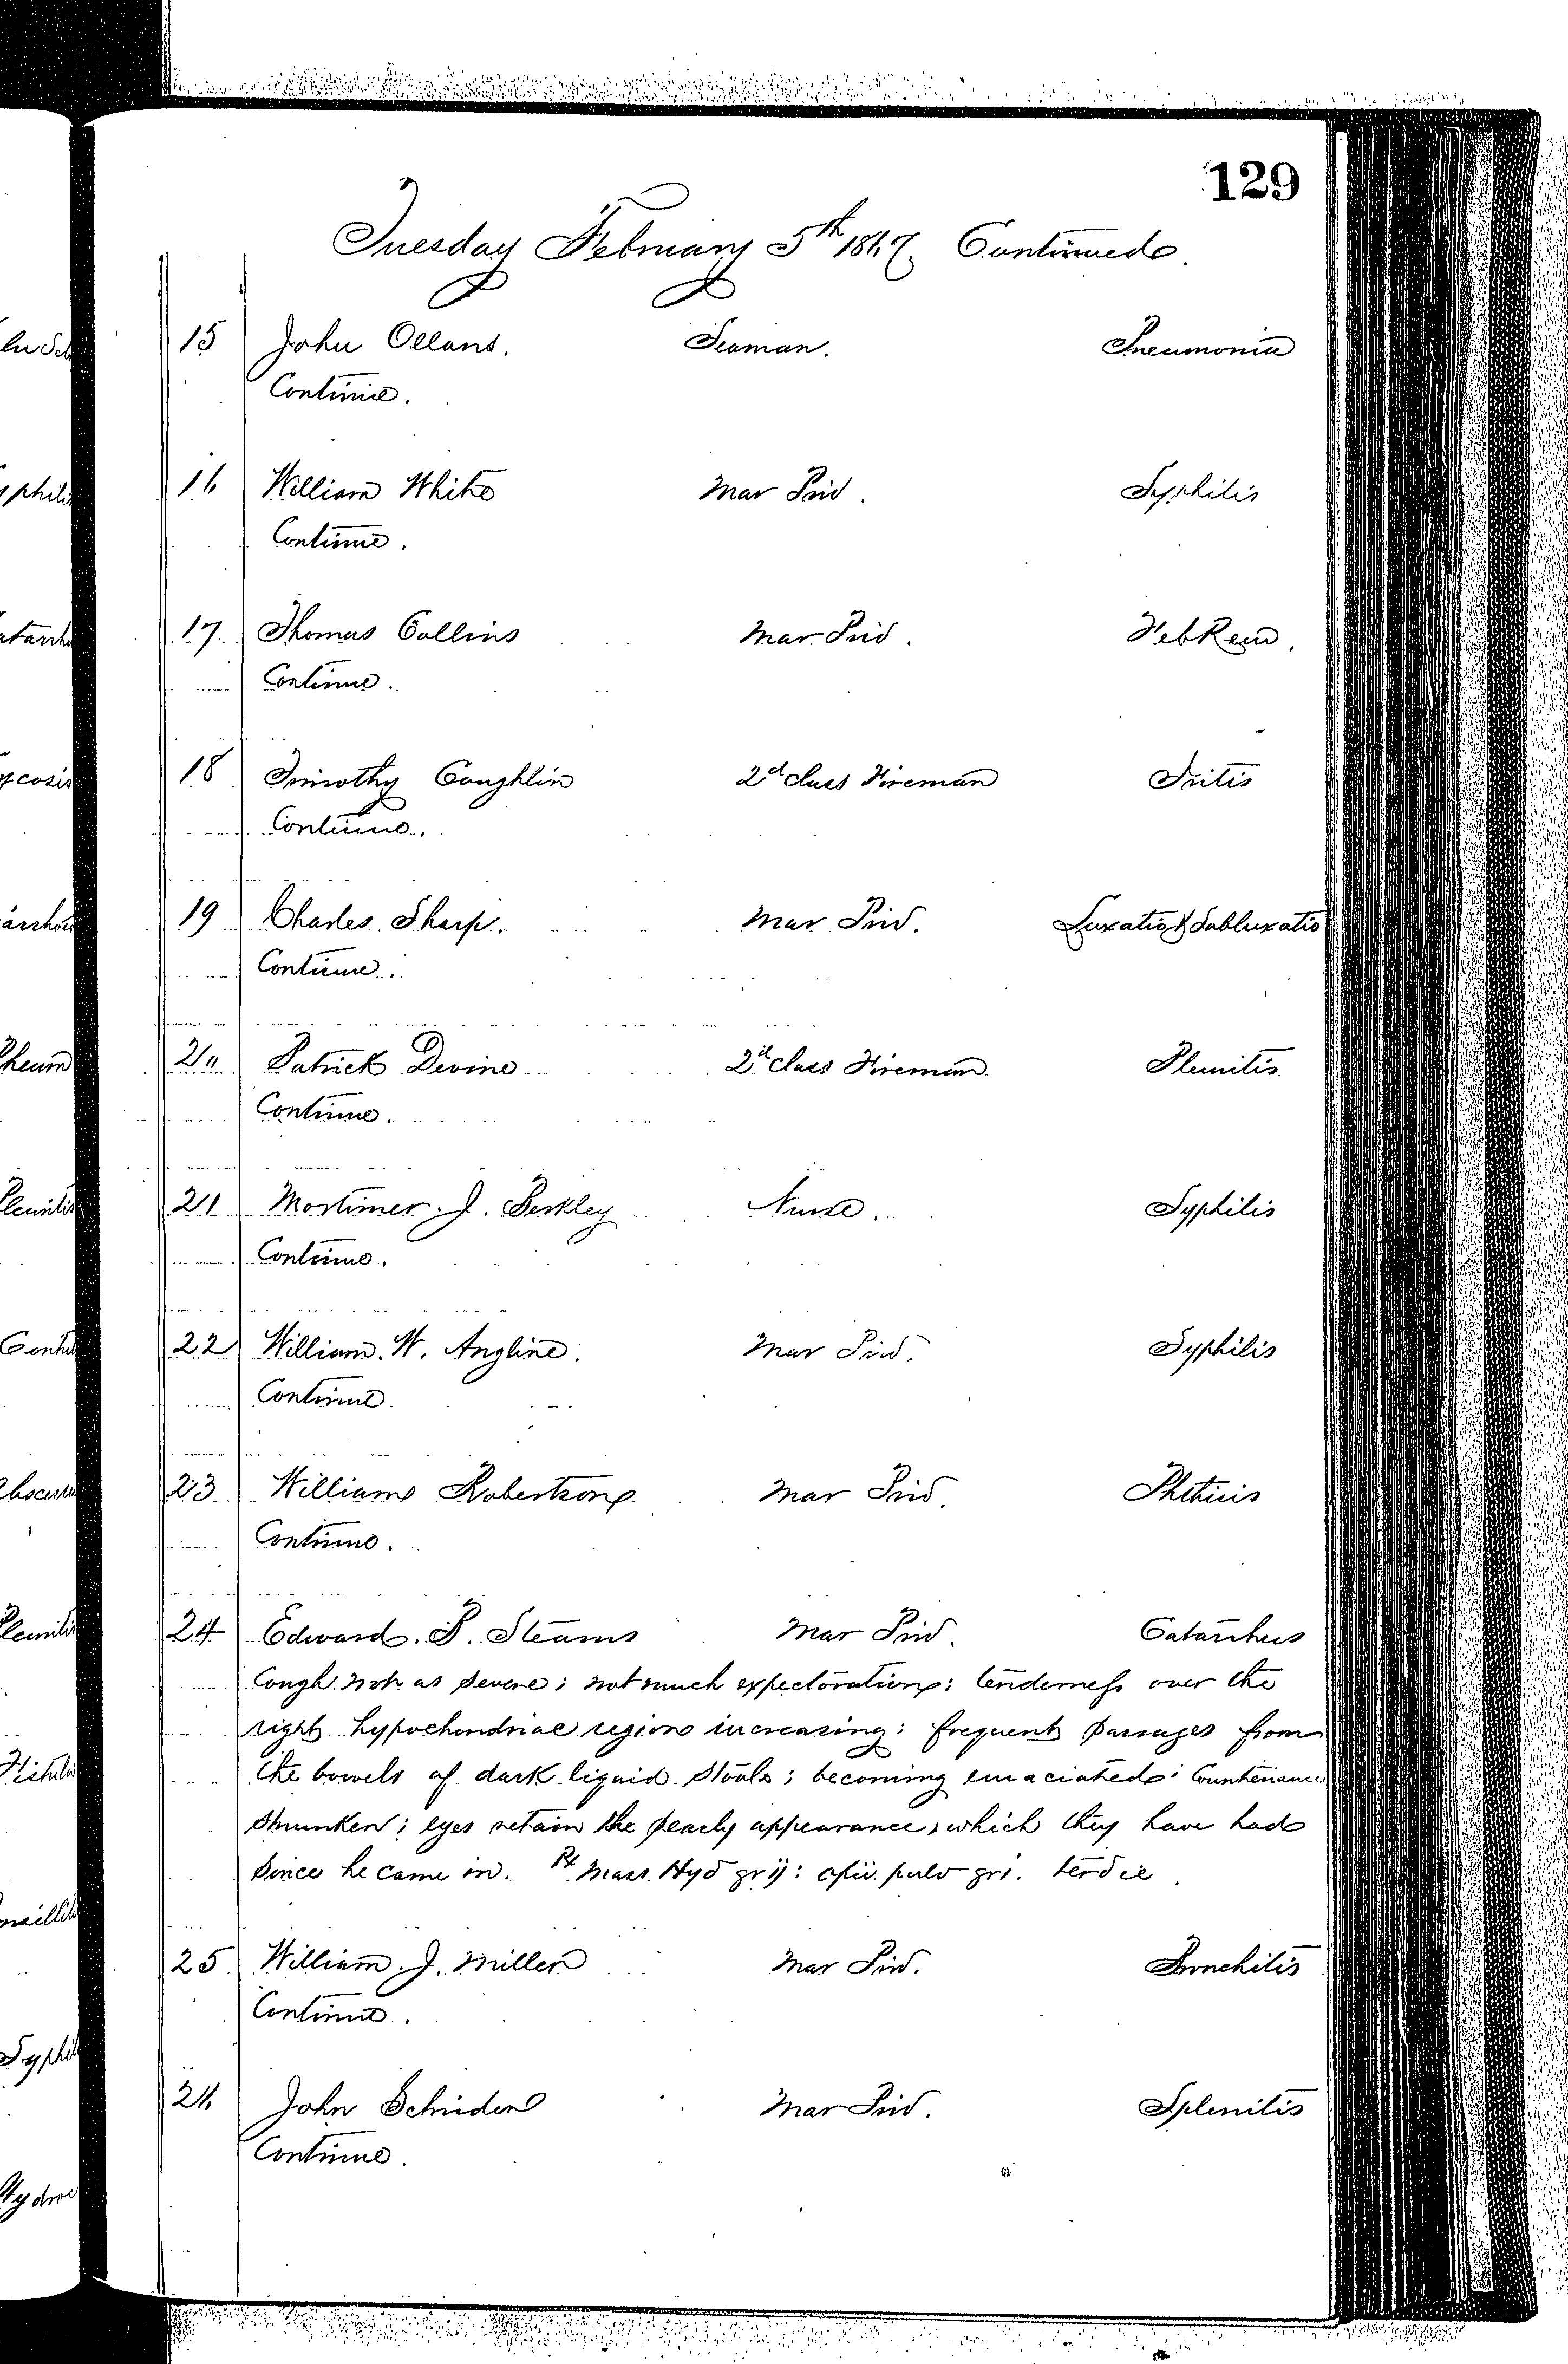 129
Tuesday February 5th 1867 Continued.
15 John Ollans. Seaman. Pneumonia
Continue.
16 William White Mar Prid. Syphilis
Continue.
17. Thomas Collins Mar Prid. Feb Rem.
Continue.
18 Timothy Coughlin 2d class Fireman Iritis
Continue.
19 Charles Sharp. Mar Prid. Luxatio & Subluxatio
Continue.
20 Patrick Devine 2d class Fireman Pleuritis
Continue.
21 Mortimer J. Berkley Nurse. Syphilis
Continue.
22 William. W. Angline. Mar Prid. Syphilis
Continue
23 William Robertson Mar Prid. Phthisis
Continue.
24 Edward. P. Stearns Mar Prid. Catarrhus
Cough not as severe; not much expectoration; tenderness over the
right hypochondriac region increasing; frequent passages from
the bowels of dark liquid stools; becoming emaciated; Countenance
shrunken; eyes retain the pearly appearance, which they have had
since he came in. Rx Mass Hyd grij: opii pulv gri. terdie.
25 William. J. Miller Mar Prid. Bronchitis
Continue.
26 John Schrider Mar Prid. Splenitis
Continue.